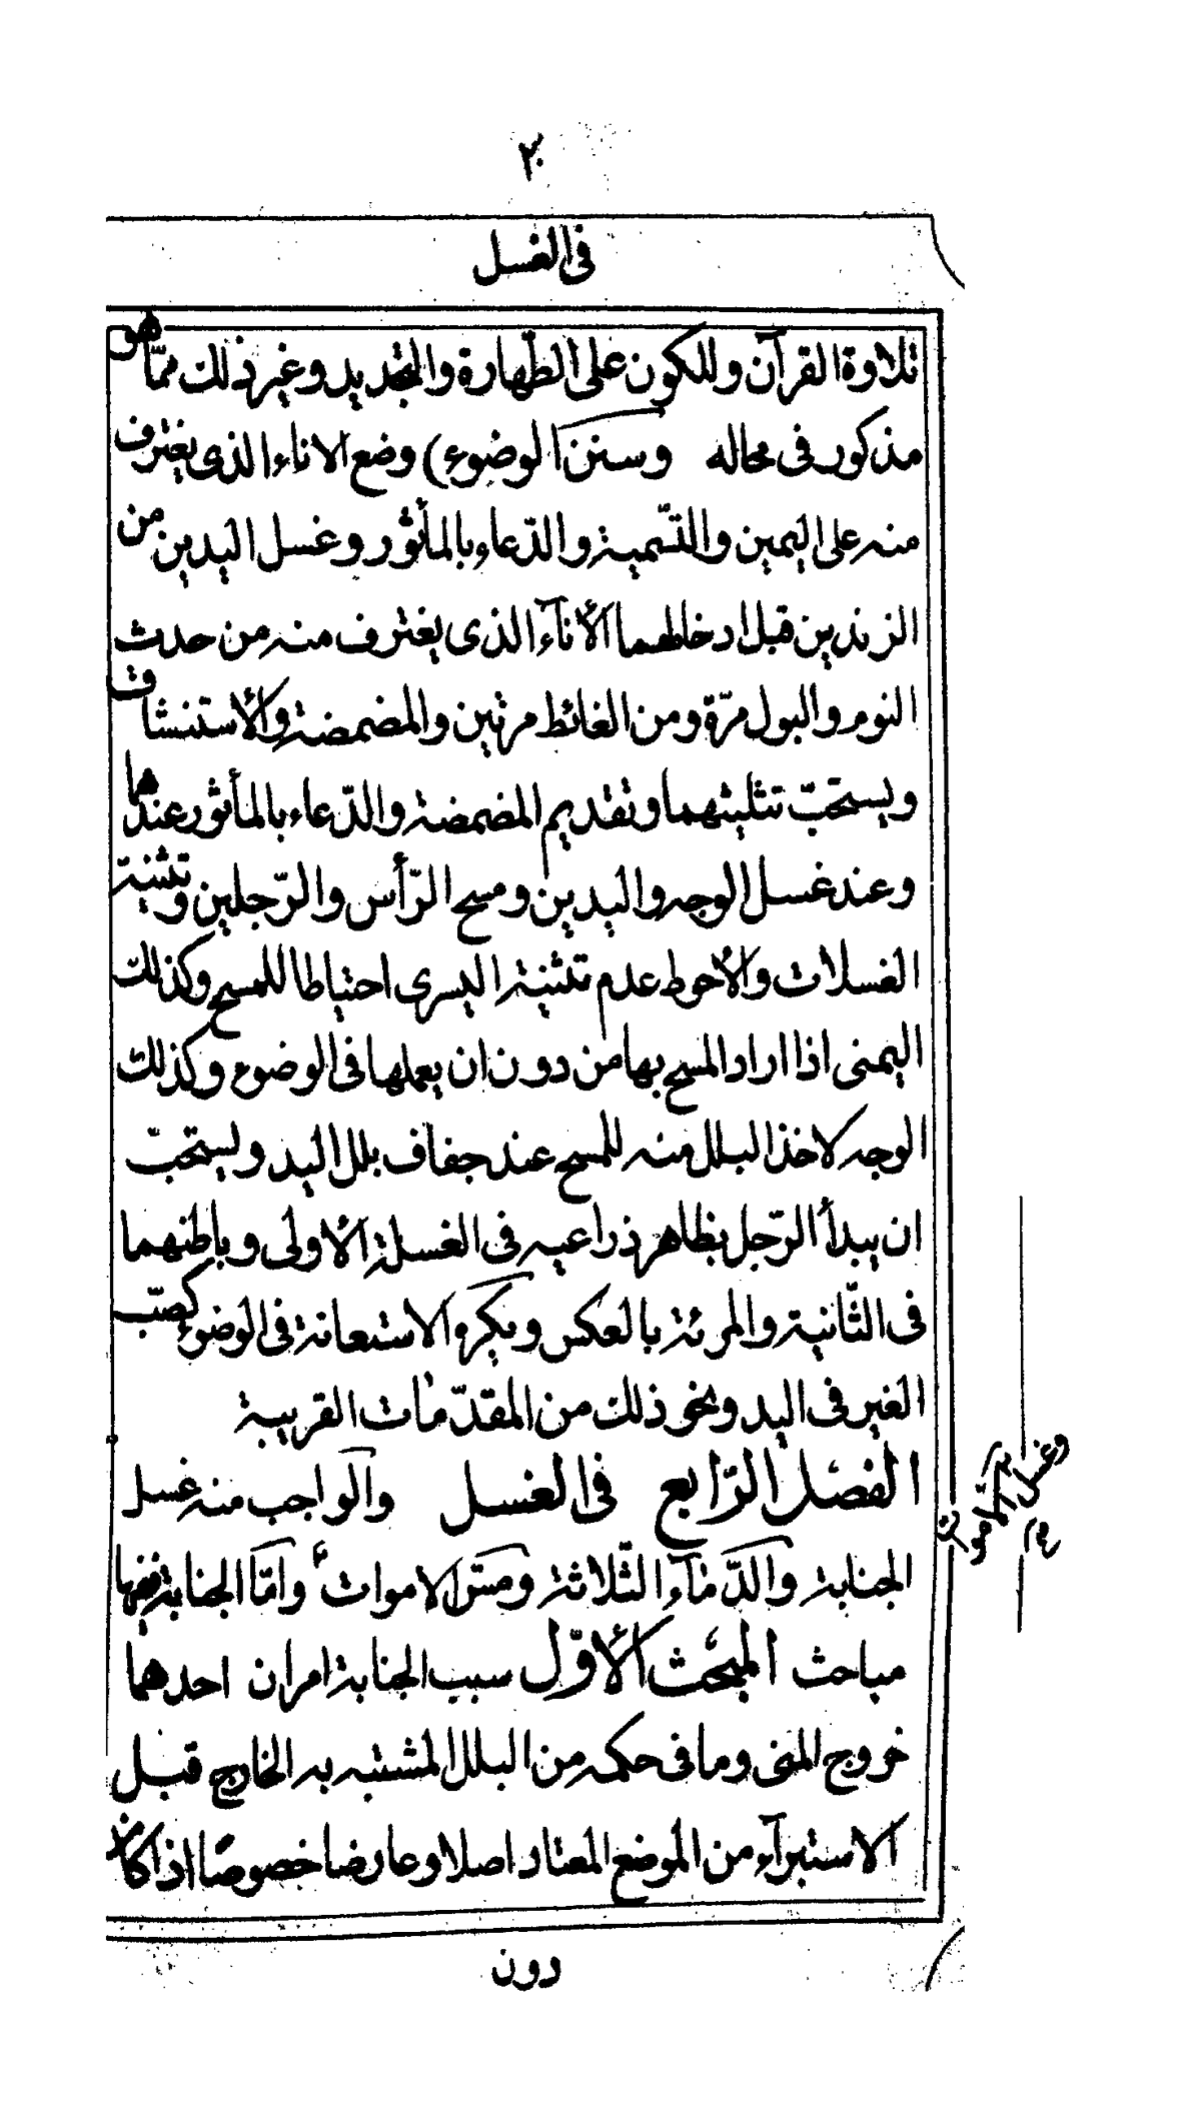 ٢٠
فى الغسل
تلاوة القرآن وللكون على الطّهارة والتجديد وغير ذلك ممّا هو
مذكور فى محاله وسنن الوضوء) وضع الاناء الذى يغترف
منه على اليمين والتّسمية والدّعاء بالمأثور وغسل اليدين من
الزندين قبل ادخالهما الأناۤء الذى يغترف منه من حدث
النوم والبول مرّة ومن الغائط مرتين والمضمضة والأستنشاق
ويستحبّ تثليثهما وتقديم المضمضة والدّعاء بالمأثور عندهما
وعند غسل الوجه واليدين ومسح الرّأس والرّجلين وتثنية
الغسلات والأحوط عدم تثنية اليسرى احتياطا للمسح وكذلك
اليمنى اذا اراد المسح بها من دون ان يعملها فى الوضوء وكذلك
الوجه لاخذ البلل منه للمسح عند جفاف بلل اليد ويستحبّ
ان يبدأ الرّجل بظاهر ذراعيه فى الغسلة الأولى وباطنهما
فى الثّانية والمرئة بالعكس ويكره الاستعانة فى الوضوء كصبّ
الغير فى اليد ونحو ذلك من المقدّمات القريبة
الفصل الرّابع فى الغسل والواجب منه غسل
الجنابة والدّماۤء الثّلاثة ومسّ الاموات وامّا الجنابة ففيها
وغسل الاموات
مباحث المبحث الأوّل سبب الجنابة امران احدهما
خروج المنى وما فى حكمه من البلل المشتبه به الخارج قبل
الاستبرآء من الموضع المعتاد اصلا وعارضا خصوصًا اذا كان
دون